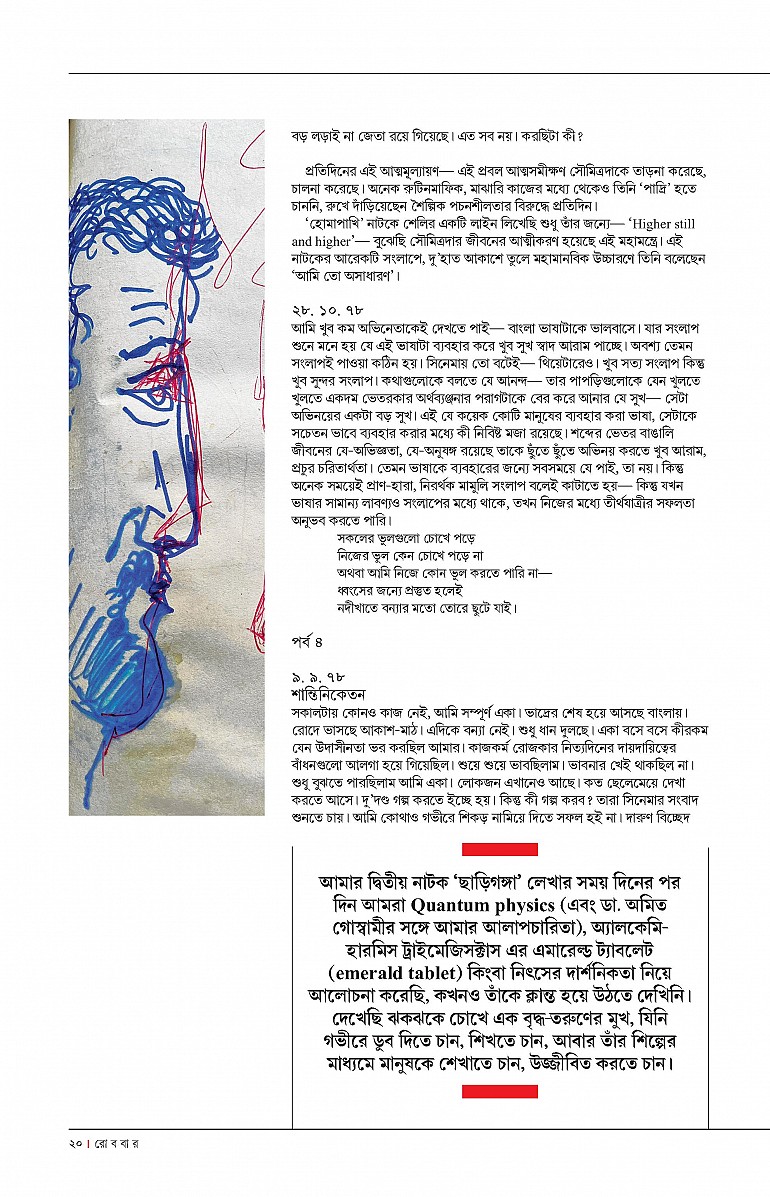 বড় লড়াই না জেতা রয়ে গিয়েছে। এত সব নয়। করছিটা কী?
প্রতিদিনের এই আত্মমূল্যায়ণ— এই প্রবল আত্মসমীক্ষণ সৌমিত্রদাকে তাড়না করেছে,
চালনা করেছে। অনেক রুটিনমাফিক, মাঝারি কাজের মধ্যে থেকেও তিনি ‘পাদ্রি’ হতে
চাননি, রুখে দাঁড়িয়েছেন শৈল্পিক পচনশীলতার বিরুদ্ধে প্রতিদিন।
‘হোমাপাখি’ নাটকে শেলির একটি লাইন লিখেছি শুধু তাঁর জন্যে— ‘Higher still
and higher’— বুঝেছি সৌমিত্রদার জীবনের আত্মীকরণ হয়েছে এই মহামন্ত্রে। এই
নাটকের আরেকটি সংলাপে, দু’হাত আকাশে তুলে মহামানবিক উচ্চারণে তিনি বলেছেন
‘আমি তো অসাধারণ’।
২৮. ১০. ৭৮
আমি খুব কম অভিনেতাকেই দেখতে পাই— বাংলা ভাষাটাকে ভালবাসে। যার সংলাপ
শুনে মনে হয় যে এই ভাষাটা ব্যবহার করে খুব সুখ স্বাদ আরাম পাচ্ছে। অবশ্য তেমন
সংলাপই পাওয়া কঠিন হয়। সিনেমায় তো বটেই— থিয়েটারেও। খুব সত্য সংলাপ কিন্তু
খুব সুন্দর সংলাপ। কথাগুলোকে বলতে যে আনন্দ— তার পাপড়িগুলোকে যেন খুলতে
খুলতে একদম ভেতরকার অর্থব্যঞ্জনার পরাগটাকে বের করে আনার যে সুখ— সেটা
অভিনয়ের একটা বড় সুখ। এই যে কয়েক কোটি মানুষের ব্যবহার করা ভাষা, সেটাকে
সচেতন ভাবে ব্যবহার করার মধ্যে কী নিবিষ্ট মজা রয়েছে। শব্দের ভেতর বাঙালি
জীবনের যে-অভিজ্ঞতা, যে-অনুষঙ্গ রয়েছে তাকে ছুঁতে ছুঁতে অভিনয় করতে খুব আরাম,
প্রচুর চরিতার্থতা। তেমন ভাষাকে ব্যবহারের জন্যে সবসময়ে যে পাই, তা নয়। কিন্তু
অনেক সময়েই প্রাণ-হারা, নিরর্থক মামুলি সংলাপ বলেই কাটাতে হয়— কিন্তু যখন
ভাষার সামান্য লাবণ্যও সংলাপের মধ্যে থাকে, তখন নিজের মধ্যে তীর্থযাত্রীর সফলতা
অনুভব করতে পারি।
সকলের ভুলগুলো চোখে পড়ে
নিজের ভুল কেন চোখে পড়ে না
অথবা আমি নিজে কোন ভুল করতে পারি না—
ধ্বংসের জন্যে প্রস্তুত হলেই
নদীখাতে বন্যার মতো তোরে ছুটে যাই।
পর্ব ৪
৯. ৯. ৭৮
শান্তিনিকেতন
সকালটায় কোনও কাজ নেই, আমি সম্পূর্ণ একা। ভাদ্রের শেষ হয়ে আসছে বাংলায়।
রোদে ভাসছে আকাশ-মাঠ। এদিকে বন্যা নেই। শুধু ধান দুলছে। একা বসে বসে কীরকম
যেন উদাসীনতা ভর করছিল আমার। কাজকর্ম রোজকার নিত্যদিনের দায়দায়িত্বের
বাঁধনগুলো আলগা হয়ে গিয়েছিল। শুয়ে শুয়ে ভাবছিলাম। ভাবনার খেই থাকছিল না।
শুধু বুঝতে পারছিলাম আমি একা। লোকজন এখানেও আছে। কত ছেলেমেয়ে দেখা
করতে আসে। দু’দণ্ড গল্প করতে ইচ্ছে হয়। কিন্তু কী গল্প করব? তারা সিনেমার সংবাদ
শুনতে চায়। আমি কোথাও গভীরে শিকড় নামিয়ে দিতে সফল হই না। দারুণ বিচ্ছেদ
আমার দ্বিতীয় নাটক ‘ছাড়িগঙ্গা’ লেখার সময় দিনের পর
দিন আমরা Quantum physics (এবং ডা. অমিত
গোস্বামীর সঙ্গে আমার আলাপচারিতা), অ্যালকেমি-
হারমিস ট্রাইমেজিসক্টাস এর এমারেল্ড ট্যাবলেট
(emerald tablet) কিংবা নিৎসের দার্শনিকতা নিয়ে
আলোচনা করেছি, কখনও তাঁকে ক্লান্ত হয়ে উঠতে দেখিনি।
দেখেছি ঝকঝকে চোখে এক বৃদ্ধ-তরুণের মুখ, যিনি
গভীরে ডুব দিতে চান, শিখতে চান, আবার তাঁর শিল্পের
মাধ্যমে মানুষকে শেখাতে চান, উজ্জীবিত করতে চান।
২০ | রোববার